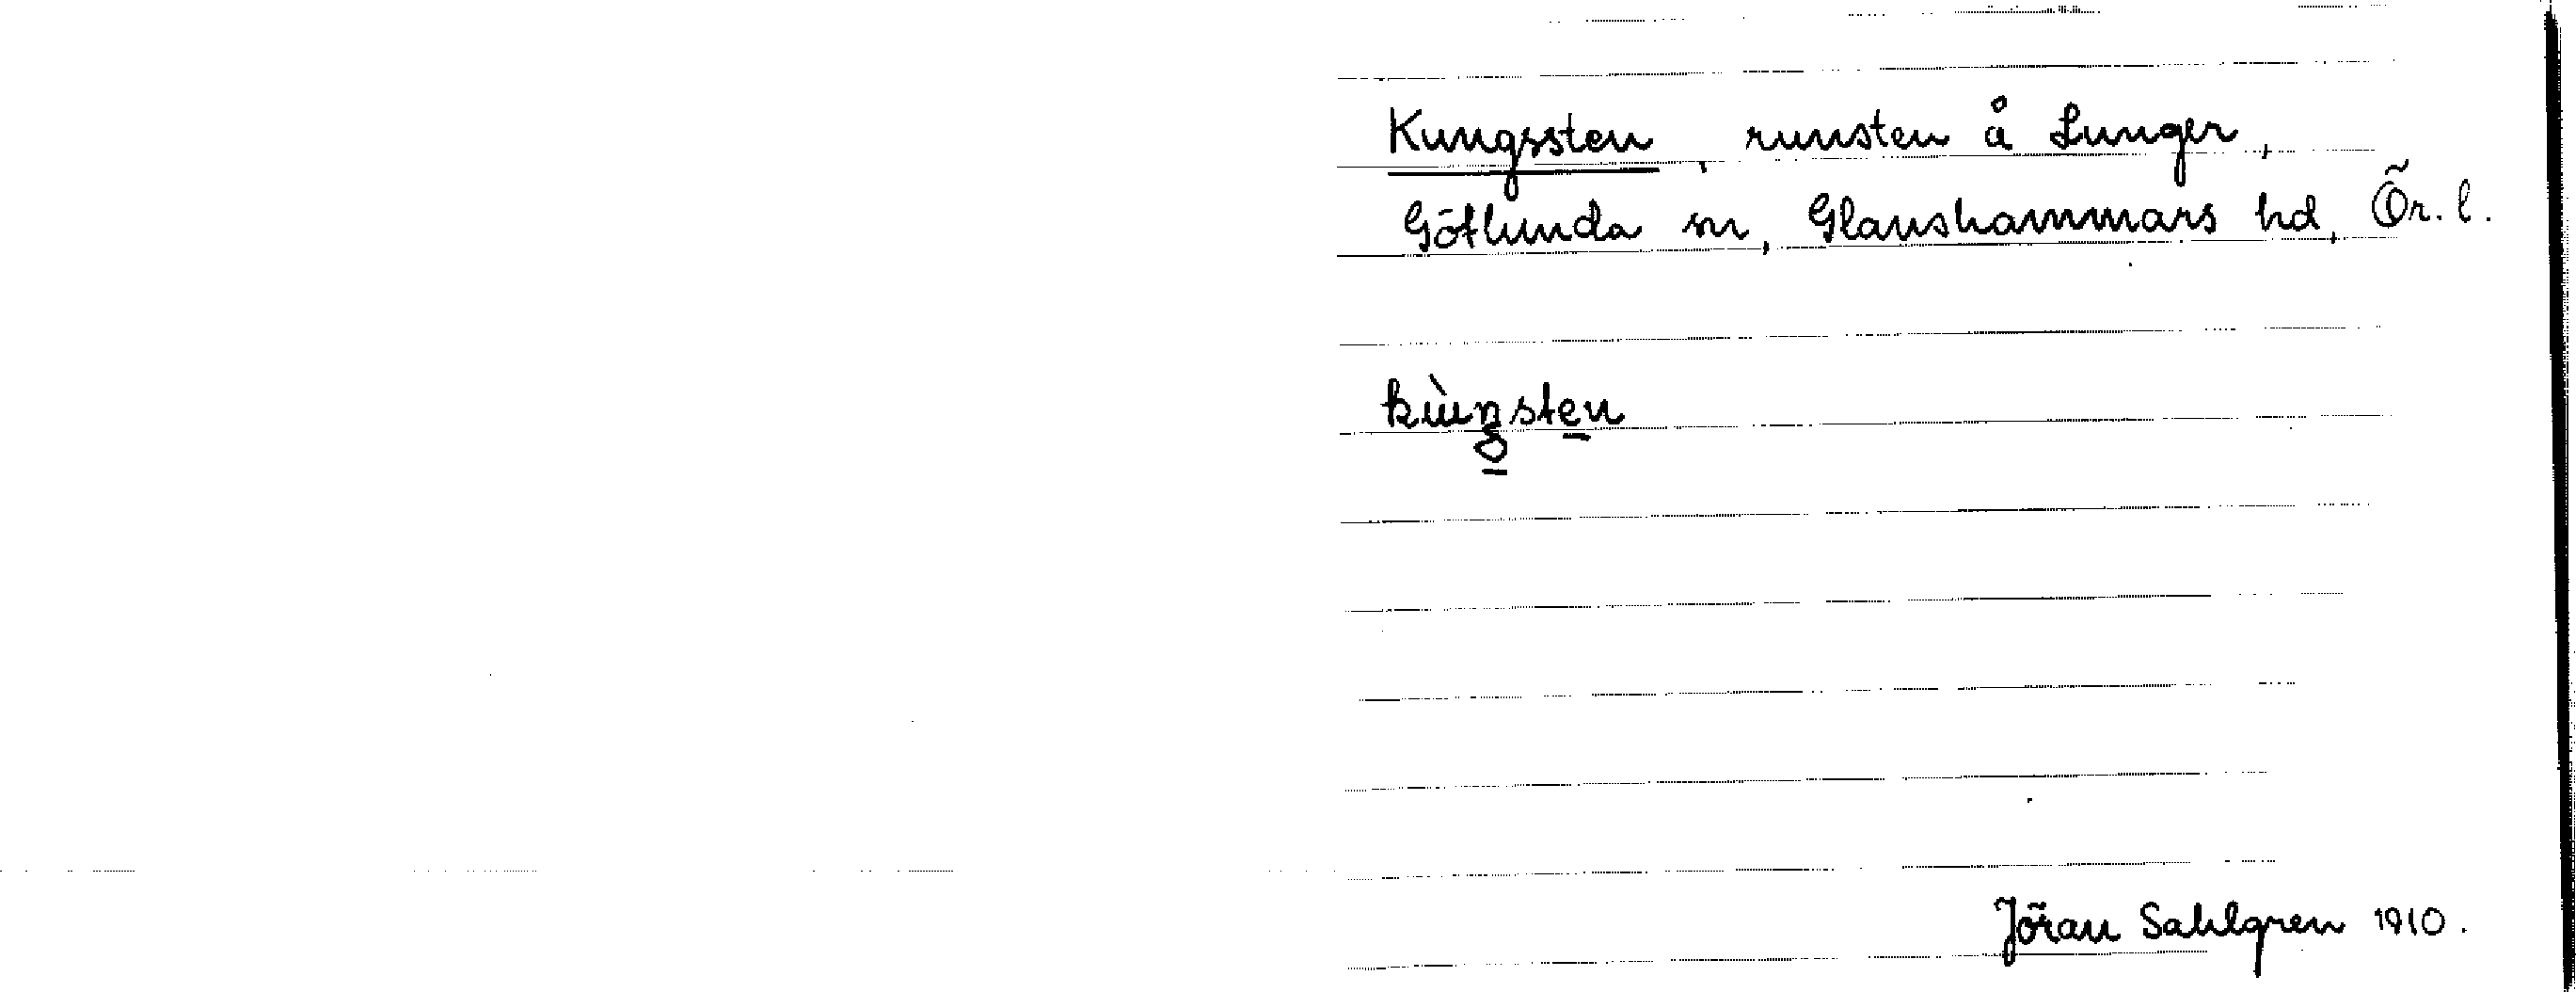 Kungssten, runsten å Lunger,
Götlunda sn, Glanshammars hd, Ör. l.
kùŋsten
Jöran Sahlgren 1910.